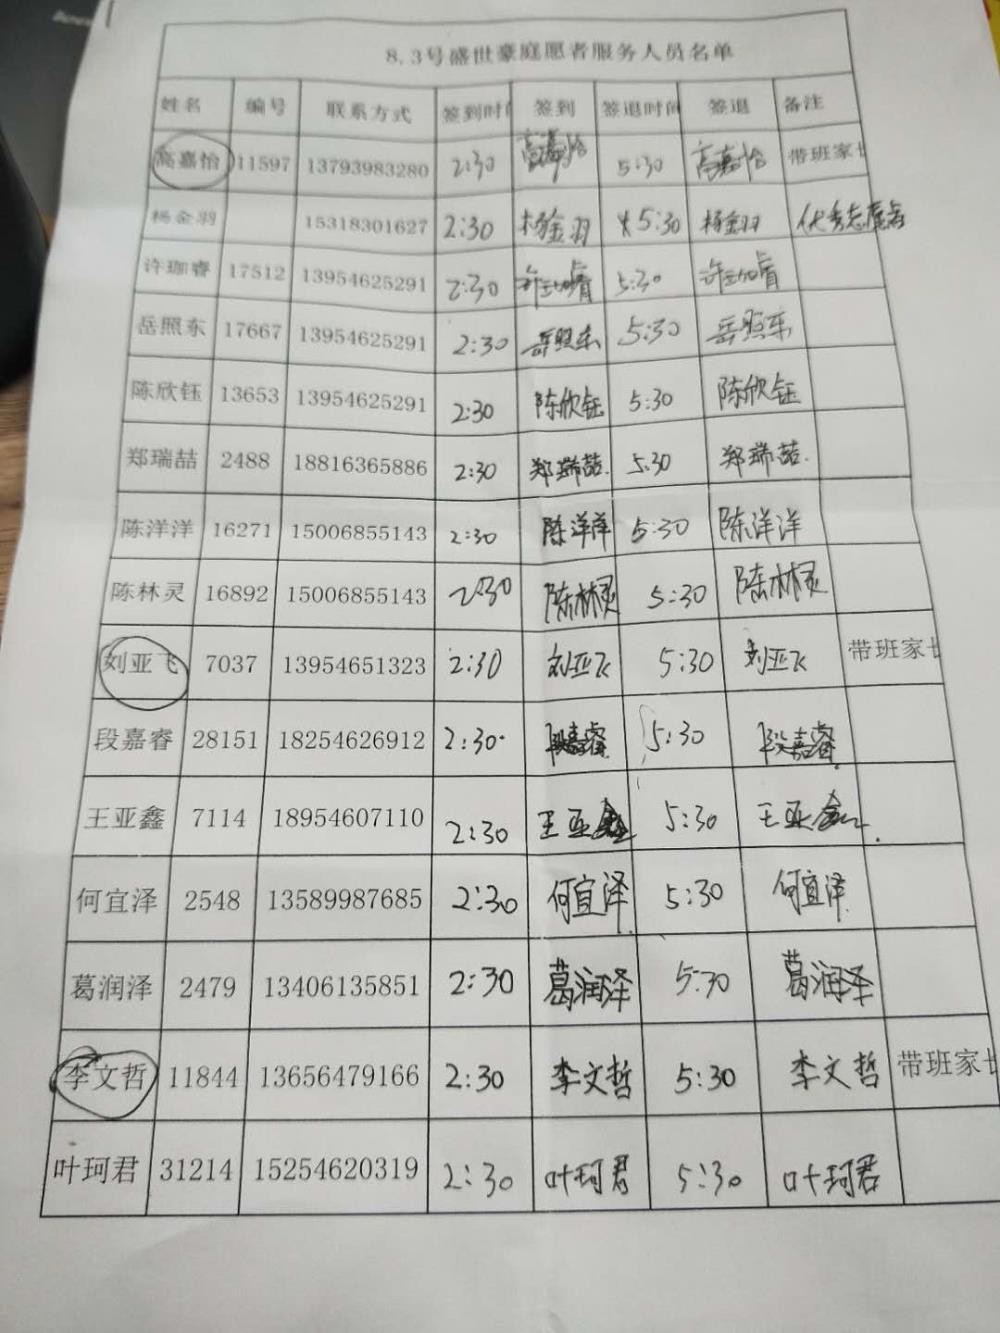 8.3号盛世豪庭愿者服务人员名单
姓名 编号 联系方式 签到时间 签到 签退时间 签退 备注
高嘉怡 11597 13793983280 2:30 高嘉怡 5:30 高嘉怡 带班家长
杨金羽 15318301627 2:30 杨金羽 5:30 杨金羽 优秀志愿者
许珈睿 17512 13954625291 2:30 许珈睿 5:30 许珈睿
岳照东 17667 13954625291 2:30 岳照东 5:30 岳照东
陈欣钰 13653 13954625291 2:30 陈欣钰 5:30 陈欣钰
郑瑞喆 2488 18816365886 2:30 郑瑞喆. 5:30 郑瑞喆.
陈洋洋 16271 15006855143 2:30 陈洋洋 5:30 陈洋洋
陈林灵 16892 15006855143 2:30 陈林灵 5:30 陈林灵
刘亚飞 7037 13954651323 2:30 刘亚飞 5:30 刘亚飞 带班家长
段嘉睿 28151 18254626912 2:30 段嘉睿 5:30 段嘉睿
王亚鑫 7114 18954607110 2:30 王亚鑫 5:30 王亚鑫
何宜泽 2548 13589987685 2:30 何宜泽 5:30 何宜泽
葛润泽 2479 13406135851 2:30 葛润泽 5:30 葛润泽
李文哲 11844 13656479166 2:30 李文哲 5:30 李文哲 带班家长
叶珂君 31214 15254620319 2:30 叶珂君 5:30 叶珂君